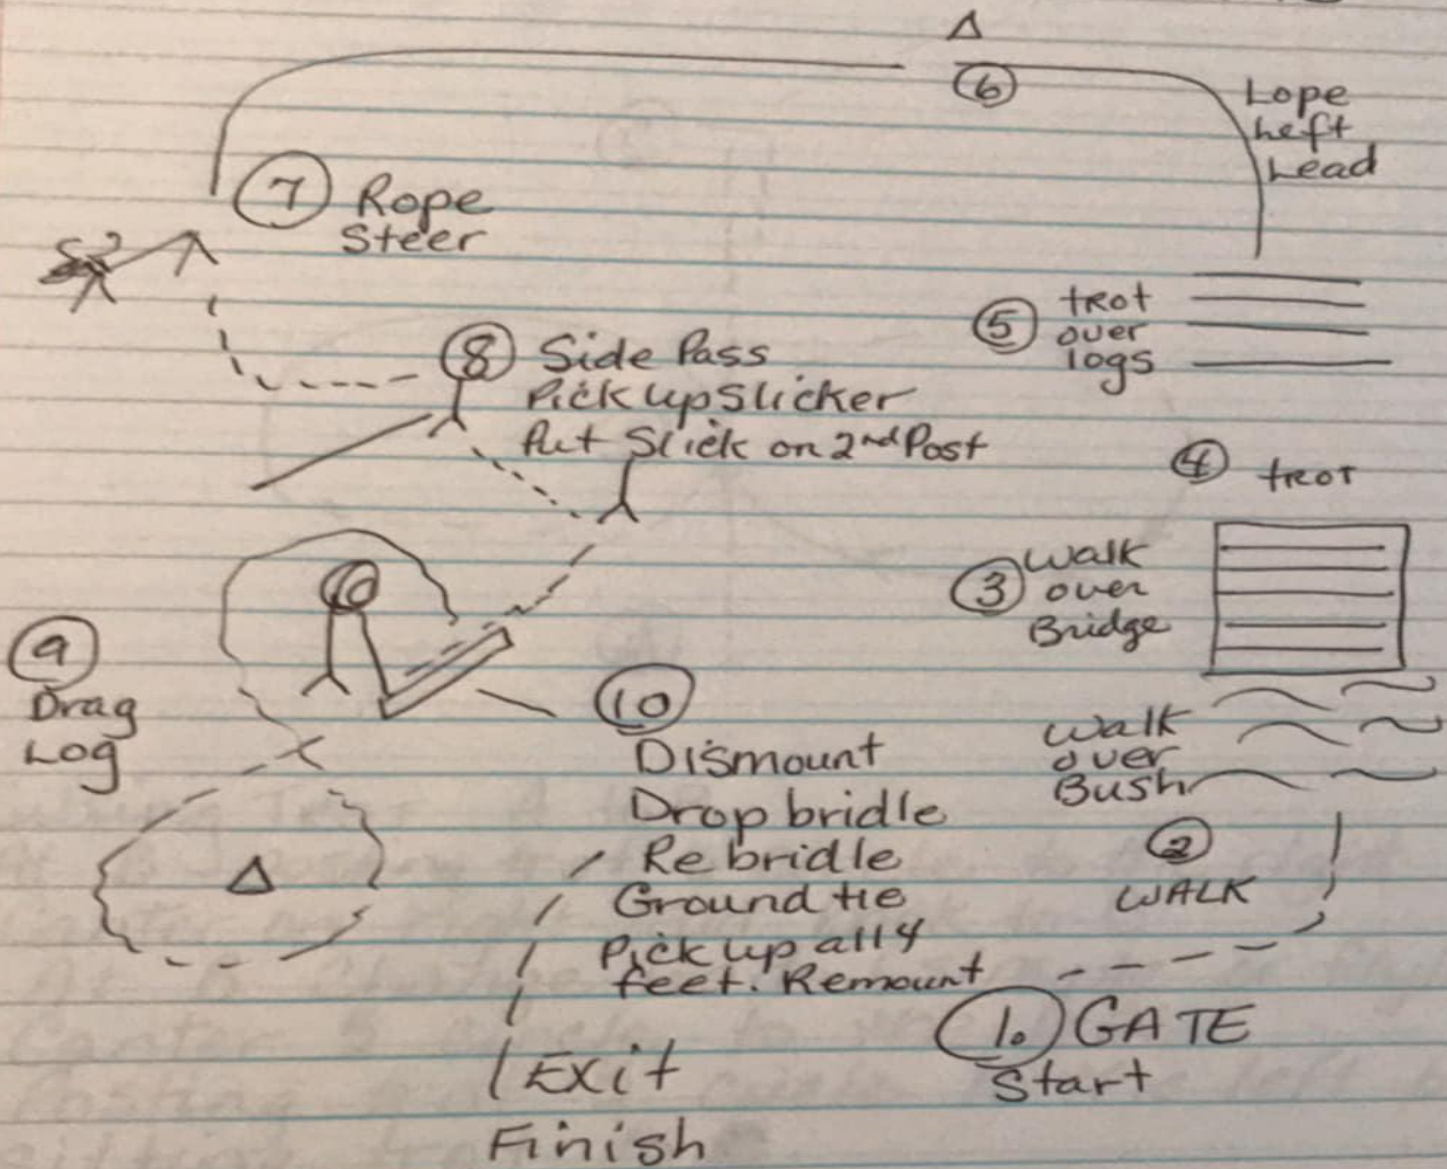 6
Lope
Left
Lead
7 Rope
Steer
5 trot
over
logs
8 Side Pass
Pick up Slicker
Put Slick on 2nd Post
4 trot
3 Walk
over
Bridge
9
Drag
Log
10
Dismount
Drop bridle
Re bridle
Ground tie
Pick up all 4
feet. Remount
Walk
over
Bush
2
WALK
1. GATE
Start
Exit
Finish